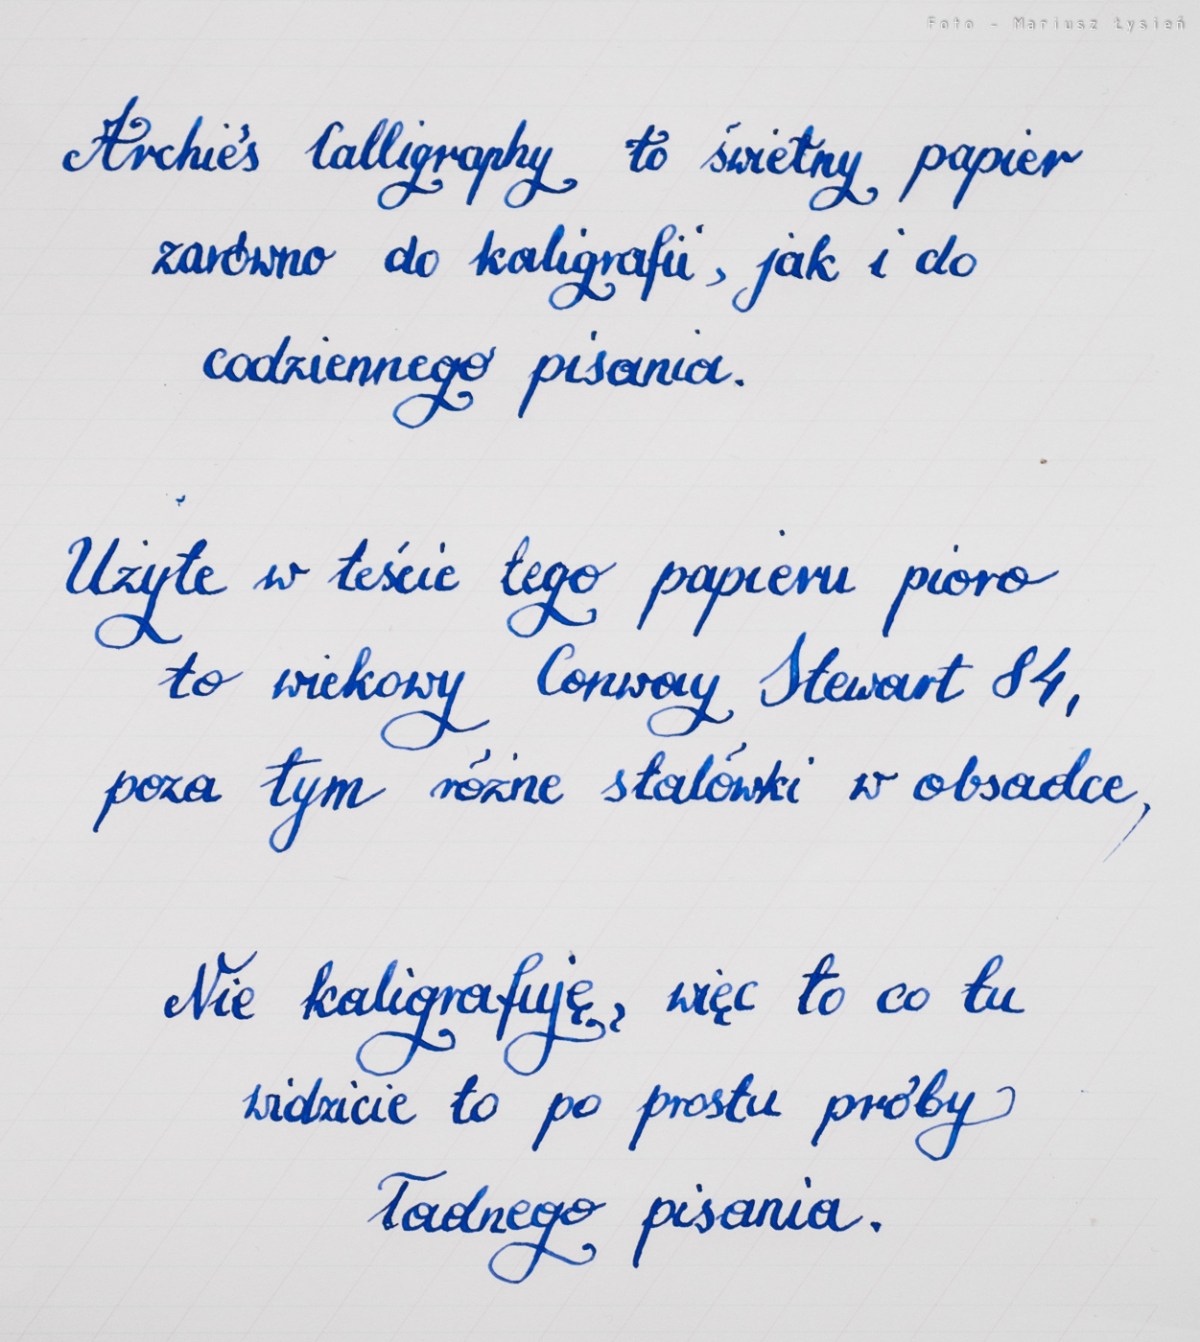 Foto - Mariusz Łysień
Archie's Calligraphy to świetny papier
zarówno do kaligrafii, jak i do
codziennego pisania.
Użyte w teście tego papieru pioro
to wiekowy Conway Stewart 84,
poza tym różne stalówki w obsadce,
Nie kaligrafuję, więc to co tu
widzicie to po prostu próby
ładnego pisania.